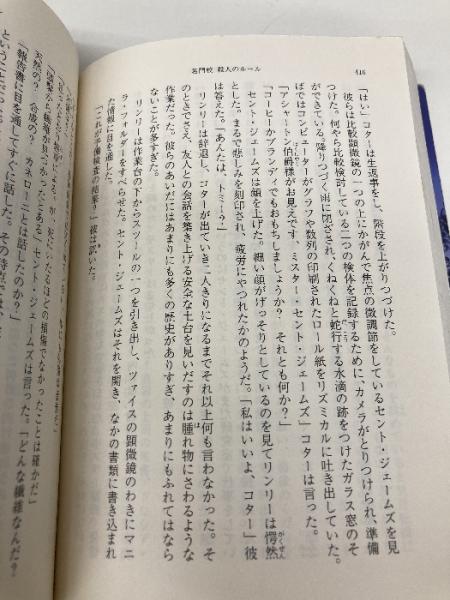 416
名門校 殺人のルール
「はい」コターは生返事をし、階段を上がりつづけた。
彼らは比較顕微鏡の一つの上にかがんで焦点の微調節をしているセント・ジェームズを見
つけた。何やら比較検討している二つの検体を記録するために、カメラがとりつけられ、準備
ができている。降りつづく雨に閉ざされ、くねくねと蛇行する水滴の跡をつけたガラス窓のそ
ばではコンピューターがグラフや数列の印刷されたロール紙をリズミカルに吐き出していた。
「アシャートン伯爵様がお見えです、ミスター・セント・ジェームズ」コターは言った。
「コーヒーかブランディでもおもちしましょうか? それとも何か?」
セント・ジェームズは顔を上げた。細い顔がげっそりとしているのを見てリンリーは愕然
がくぜん
とした。まるで悲しみを刻印され、疲労にやつれたかのようだ。「私はいいよ、コター」彼
は答えた。「あんたは、トミー?」
リンリーは辞退し、コターが出ていき二人きりになるまでそれ以上何も言わなかった。そ
のときでさえ、友人との会話を築き上げる安全な土台を見いだすのは腫れ物にさわるような
作業だった。彼らのあいだにはあまりにも多くの歴史がありすぎ、あまりにもふれてはなら
ないことが多すぎた。
リンリーは作業台の下からスツールの一つを引き出し、ツァイスの顕微鏡のわきにマニ
ラ・フォルダーをすべらせた。セント・ジェームズはそれを開き、なかの書類に書き込まれ
た情報に目を通した。
「これが予備検査の結果?」彼は訊いた。
セント・ジェームズは言った。「どんな繊維なんだ?
天然の? 合成の?
「報告書に目を通してすぐに話した。その時点では、